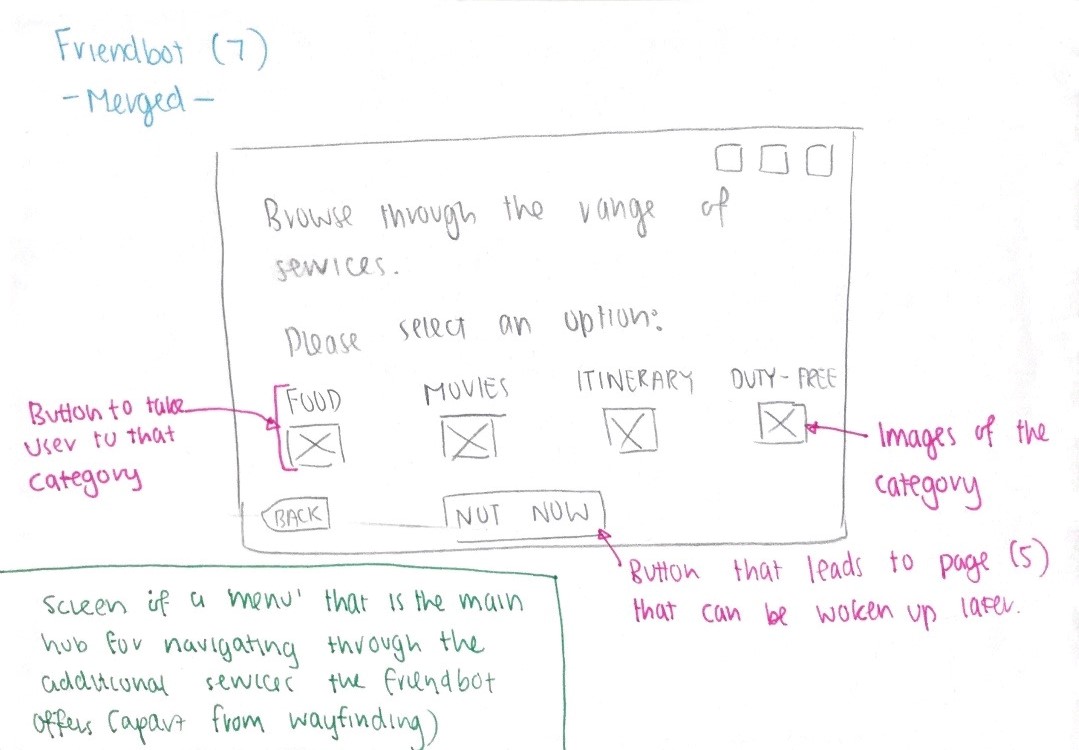 Friendbot (7)
- Merged -
Browse through the range of
services.
Please select an option:
FOOD
MOVIES
ITINERARY
DUTY-FREE
Button to take
user to that
category
Images of the
category
BACK
NOT NOW
Button that leads to page (5)
that can be woken up later.
Screen of a 'menu' that is the main
hub for navigating through the
additional services the friendbot
offers (apart from wayfinding)